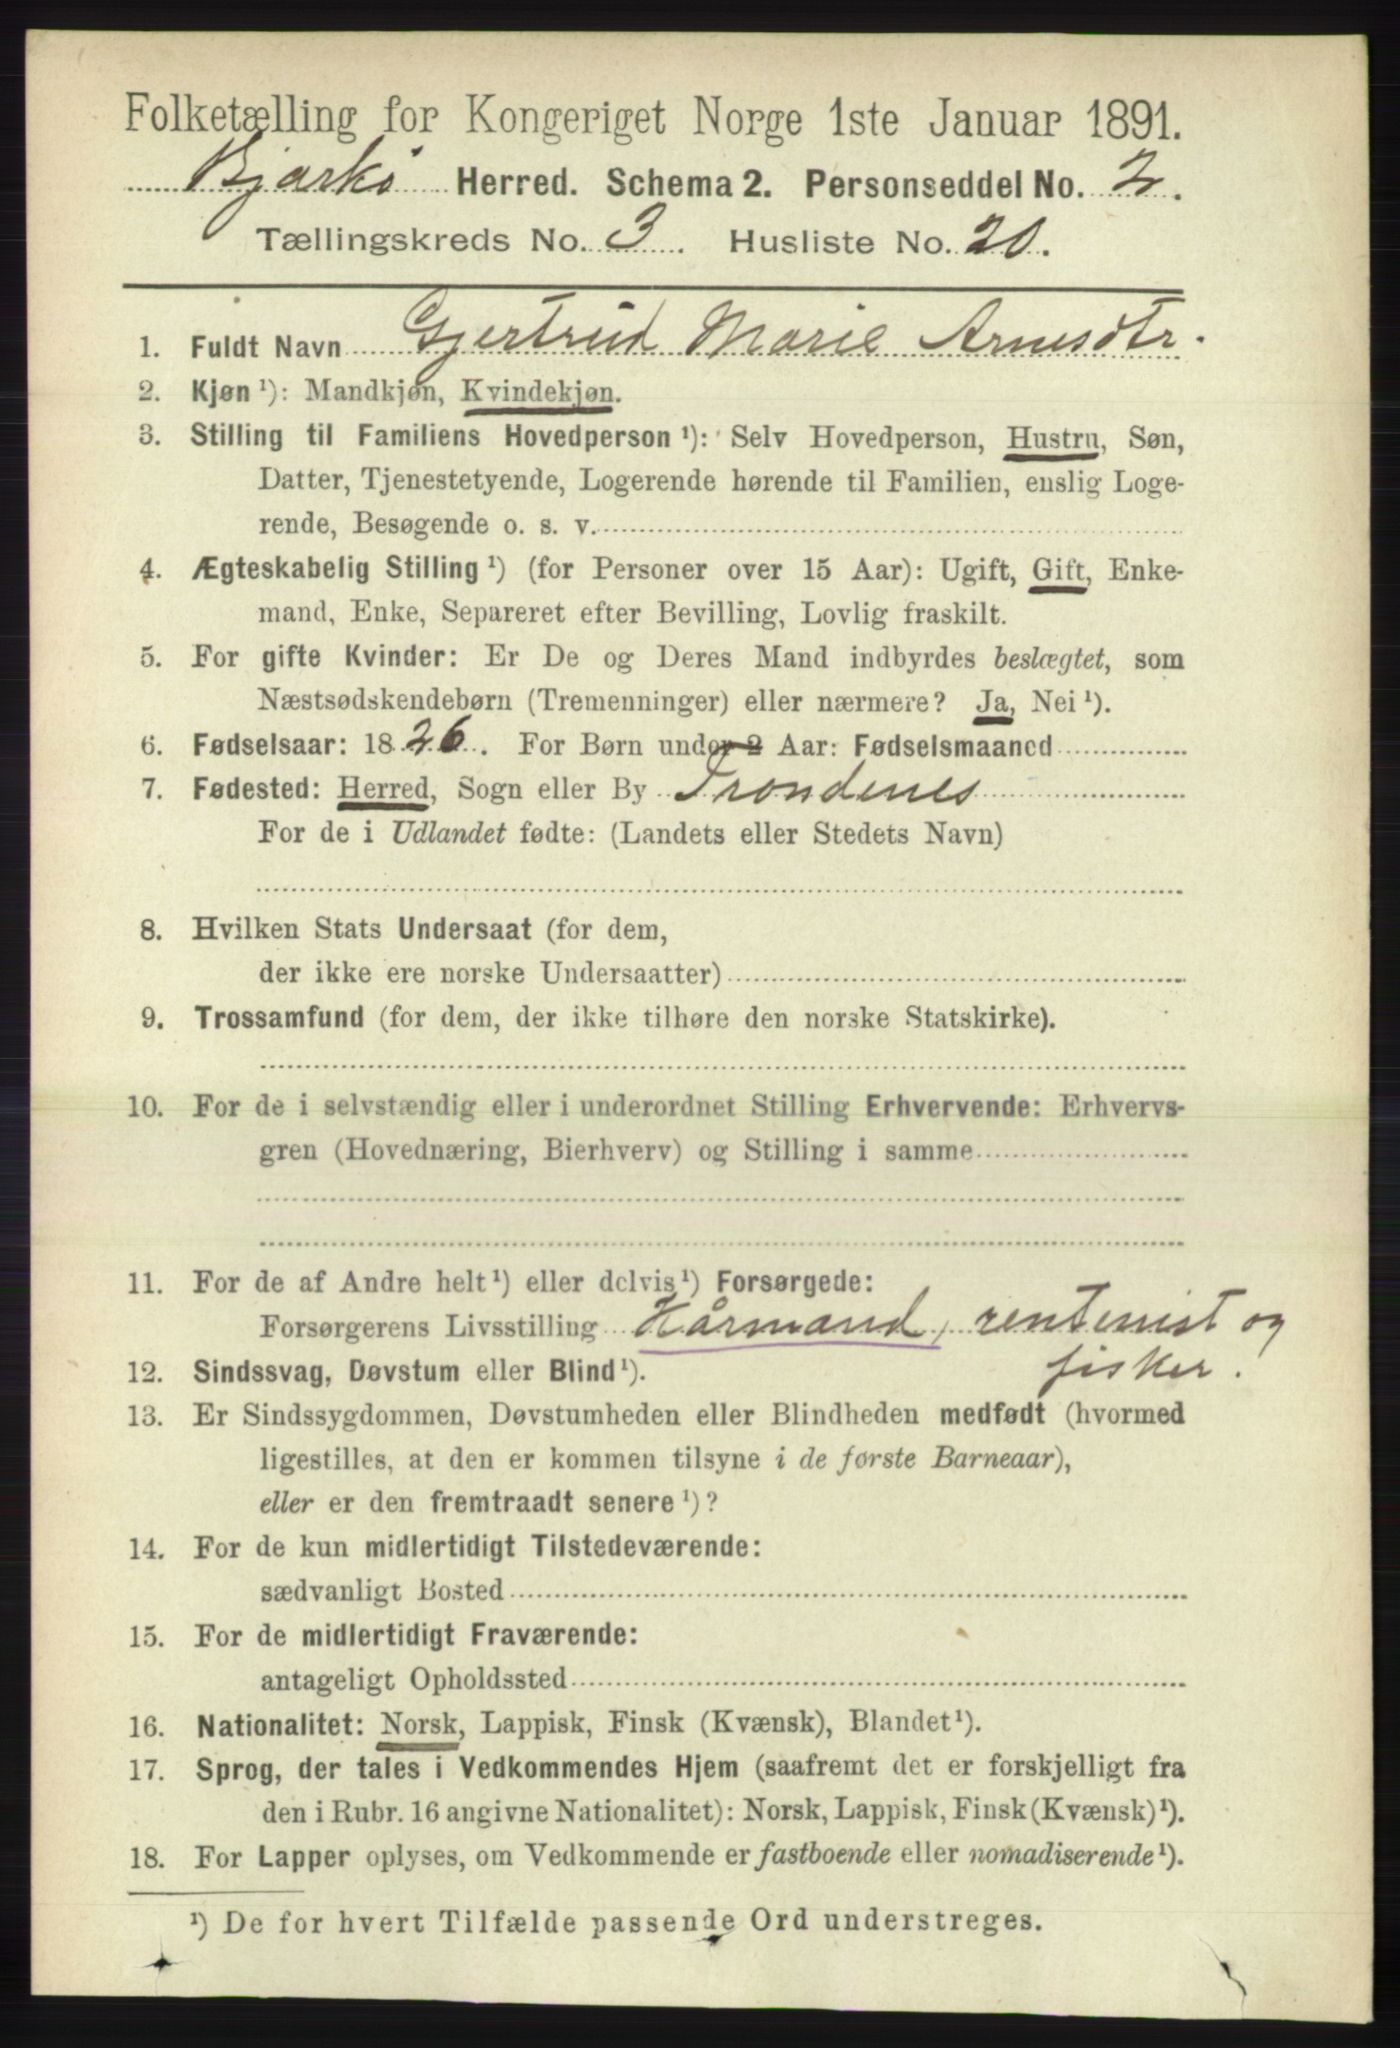 Folketælling for Kongeriget Norge 1ste Januar 1891.
Bjarkö Herred. Schema 2. Personseddel No. 2.
Tællingskreds No. 3. Husliste No. 20.
1. Fuldt Navn Gjertrud Marie Arnesdtr.
2. Kjøn ¹): Mandkjøn, Kvindekjøn.
3. Stilling til Familiens Hovedperson ¹): Selv Hovedperson, Hustru, Søn,
Datter, Tjenestetyende, Logerende hørende til Familien, enslig Loge-
rende, Besøgende o. s. v.
4. Ægteskabelig Stilling ¹) (for Personer over 15 Aar): Ugift, Gift, Enke-
mand, Enke, Separeret efter Bevilling, Lovlig fraskilt.
5. For gifte Kvinder: Er De og Deres Mand indbyrdes beslægtet, som
Næstsødskendebørn (Tremenninger) eller nærmere? Ja, Nei ¹).
6. Fødselsaar: 1826. For Børn under 2 Aar: Fødselsmaaned
7. Fødested: Herred, Sogn eller By Trondenes
For de i Udlandet fødte: (Landets eller Stedets Navn)
8. Hvilken Stats Undersaat (for dem,
der ikke ere norske Undersaatter)
9. Trossamfund (for dem, der ikke tilhøre den norske Statskirke).
10. For de i selvstændig eller i underordnet Stilling Erhvervende: Erhvervs-
gren (Hovednæring, Bierhverv) og Stilling i samme
11. For de af Andre helt ¹) eller delvis ¹) Forsørgede:
Forsørgerens Livsstilling Kårmand, rentenist og
fisker.
12. Sindssvag, Døvstum eller Blind ¹).
13. Er Sindssygdommen, Døvstumheden eller Blindheden medfødt (hvormed
ligestilles, at den er kommen tilsyne i de første Barneaar),
eller er den fremtraadt senere ¹)?
14. For de kun midlertidigt Tilstedeværende:
sædvanligt Bosted
15. For de midlertidigt Fraværende:
antageligt Opholdssted
16. Nationalitet: Norsk, Lappisk, Finsk (Kvænsk), Blandet ¹).
17. Sprog, der tales i Vedkommendes Hjem (saafremt det er forskjelligt fra
den i Rubr. 16 angivne Nationalitet): Norsk, Lappisk, Finsk (Kvænsk) ¹).
18. For Lapper oplyses, om Vedkommende er fastboende eller nomadiserende ¹).
¹) De for hvert Tilfælde passende Ord understreges.